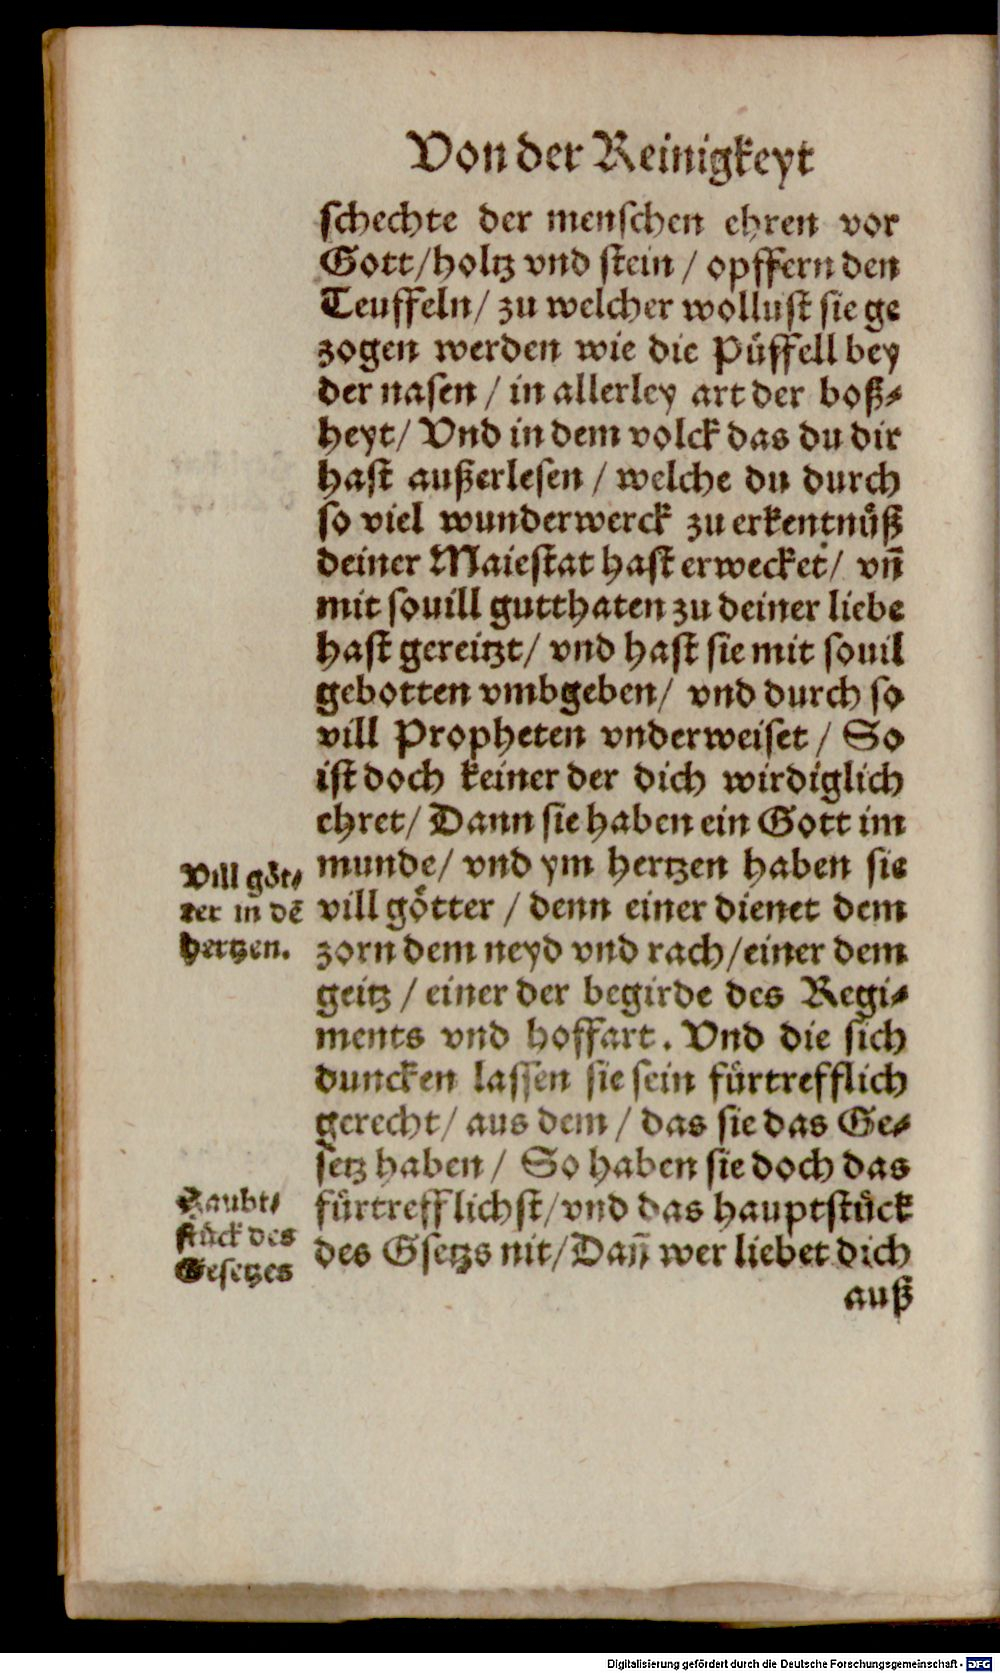 Von der Reinigkeyt
schechte der menschen ehren vor
Gott/holtz vnd stein / opffern den
Teuffeln/ zu welcher wollust sie ge
zogen werden wie die Püffell bey
der nasen / in allerley art der boß-
heyt/ Vnd in dem volck das du dir
hast außerlesen / welche du durch
so viel wunderwerck zu erkentnüß
deiner Maiestat hast erwecket/ vñ
mit souill gutthaten zu deiner liebe
hast gereitzt/ vnd hast sie mit souil
gebotten vmbgeben/ vnd durch so
vill Propheten vnderweiset / So
ist doch keiner der dich wirdiglich
ehret/ Dann sie haben ein Gott im
munde/ vnd ym hertzen haben sie
vill götter / denn einer dienet dem
zorn dem neyd vnd rach/einer dem
geitz / einer der begirde des Regi-
ments vnd hoffart. Vnd die sich
duncken lassen sie sein fürtrefflich
gerecht/ aus dem / das sie das Ge-
setz haben / So haben sie doch das
fürtrefflichst/vnd das hauptstück
des Gsetzs nit/Dañ wer liebet dich
auß
Vill göt-
ter in dẽ
hertzen.
Haubt-
stück des
Gesetzes
Digitalisierung gefördert durch die Deutsche Forschungsgemeinschaft - DFG